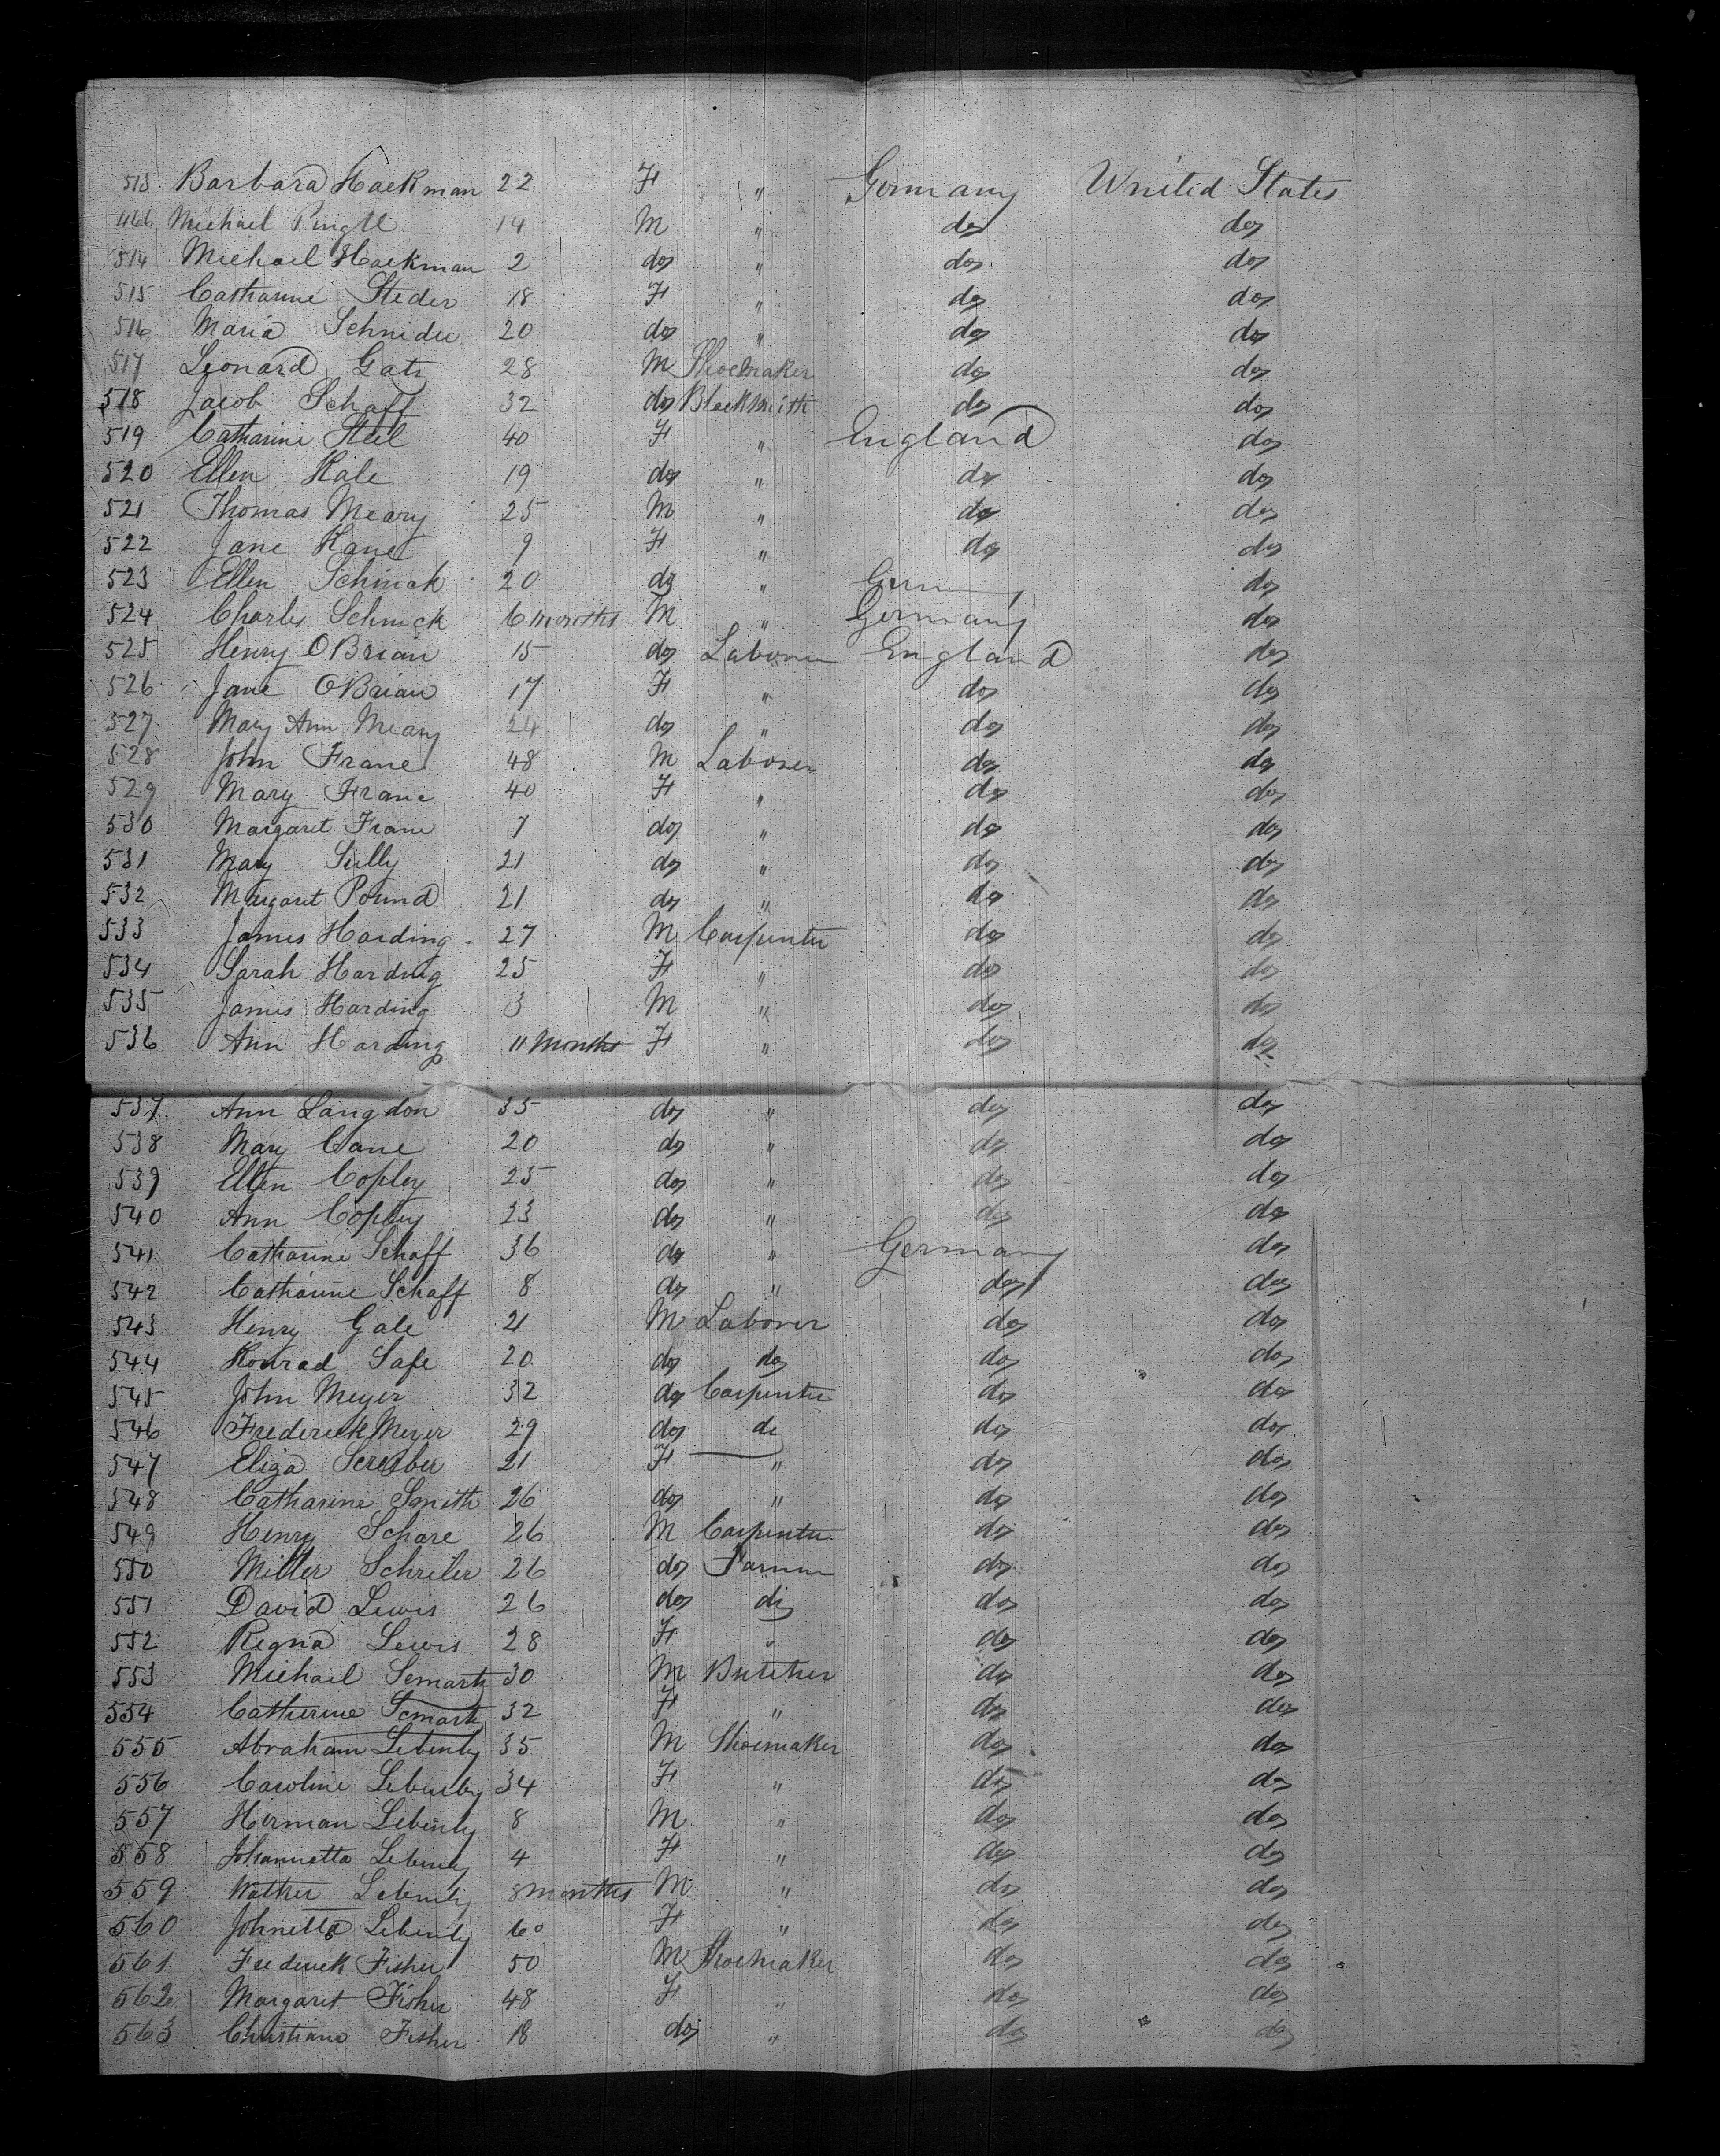 513 Barbara Hackman 22 F " Germany United States
1166 Michael Pingel 14 M " do do
514 Michael Hackman 2 do " do do
515 Catharine Steder 18 F " do do
516 Maria Schnider 20 do " do do
517 Leonard Gatz 28 M Shoemaker do do
518 Jacob Schaff 32 do Blacksmith do do
519 Catharine Steel 40 F " England do
520 Ellen Kale 19 do " do do
521 Thomas Meary 25 M " do do
522 Jane Kane 9 F " do do
523 Ellen Schinck 20 do " Germany do
524 Charles Schnick 6 months M " Germany do
525 Henry OBrian 15 do Laborer England do
526 Jane OBrian 17 F " do do
527 Mary Ann Meary 24 do " do do
528 John Frane 48 M Laborer do do
529 Mary Frane 40 F " do do
530 Margaret Frane 7 do " do do
531 Mary Sully 21 do " do do
532 Margaret Pound 21 do " do do
533 James Harding 27 M Carpenter do do
534 Sarah Harding 25 F " do do
535 James Harding 3 M " do do
536 Ann Harding 11 months F " do do
537 Ann Langdon 35 do " do do
538 Mary Cane 20 do " do do
539 Ellen Copley 25 do " do do
540 Ann Copley 23 do " do do
541 Catharine Schaff 36 do " Germany do
542 Catharine Schaff 8 do " do do
543 Henry Gale 21 M Laborer do do
544 Konrad Safe 20 do do do do
545 John Meyer 32 do Carpenter do do
546 Frederick Meyer 29 do do do do
547 Eliza Screiber 21 F " do do
548 Catharine Smith 26 do " do do
549 Henry Schare 26 M Carpenter do do
550 Miller Schreiler 26 do Farmer do do
551 David Lewis 26 do do do do
552 Regna Lewis 28 F " do do
553 Michael Semartz 30 M Butcher do do
554 Catherine Semartz 32 F " do do
555 Abraham Lebenly 35 M Shoemaker do do
556 Caroline Lebenly 34 F " do do
557 Herman Lebenly 8 M " do do
558 Johannetta Lebenly 4 F " do do
559 Walther Lebenly 8 months M " do do
560 Johnetta Lebenly 60 F " do do
561 Frederick Fisher 50 M Shoemaker do do
562 Margaret Fisher 48 F " do do
563 Christiana Fisher 18 do " do do